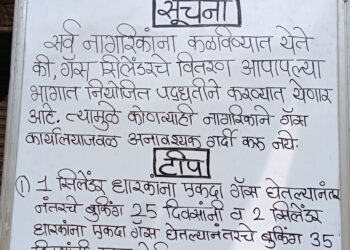 सूचना
सर्व नागरिकांना कळविण्यात येते
की, गॅस सिलेंडरचे वितरण आपापल्या
भागात नियोजित पद्धतीने करण्यात येणार
आहे. त्यामुळे कोणत्याही नागरिकाने गॅस
कार्यालयाजवळ अनावश्यक गर्दी करू नये.
टीप
① 1 सिलेंडर धारकांना एकदा गॅस घेतल्यानंतर
नंतरचे बुकिंग 25 दिवसांनी व 2 सिलेंडर
धारकांना एकदा गॅस घेतल्यानंतरचे बुकिंग 35